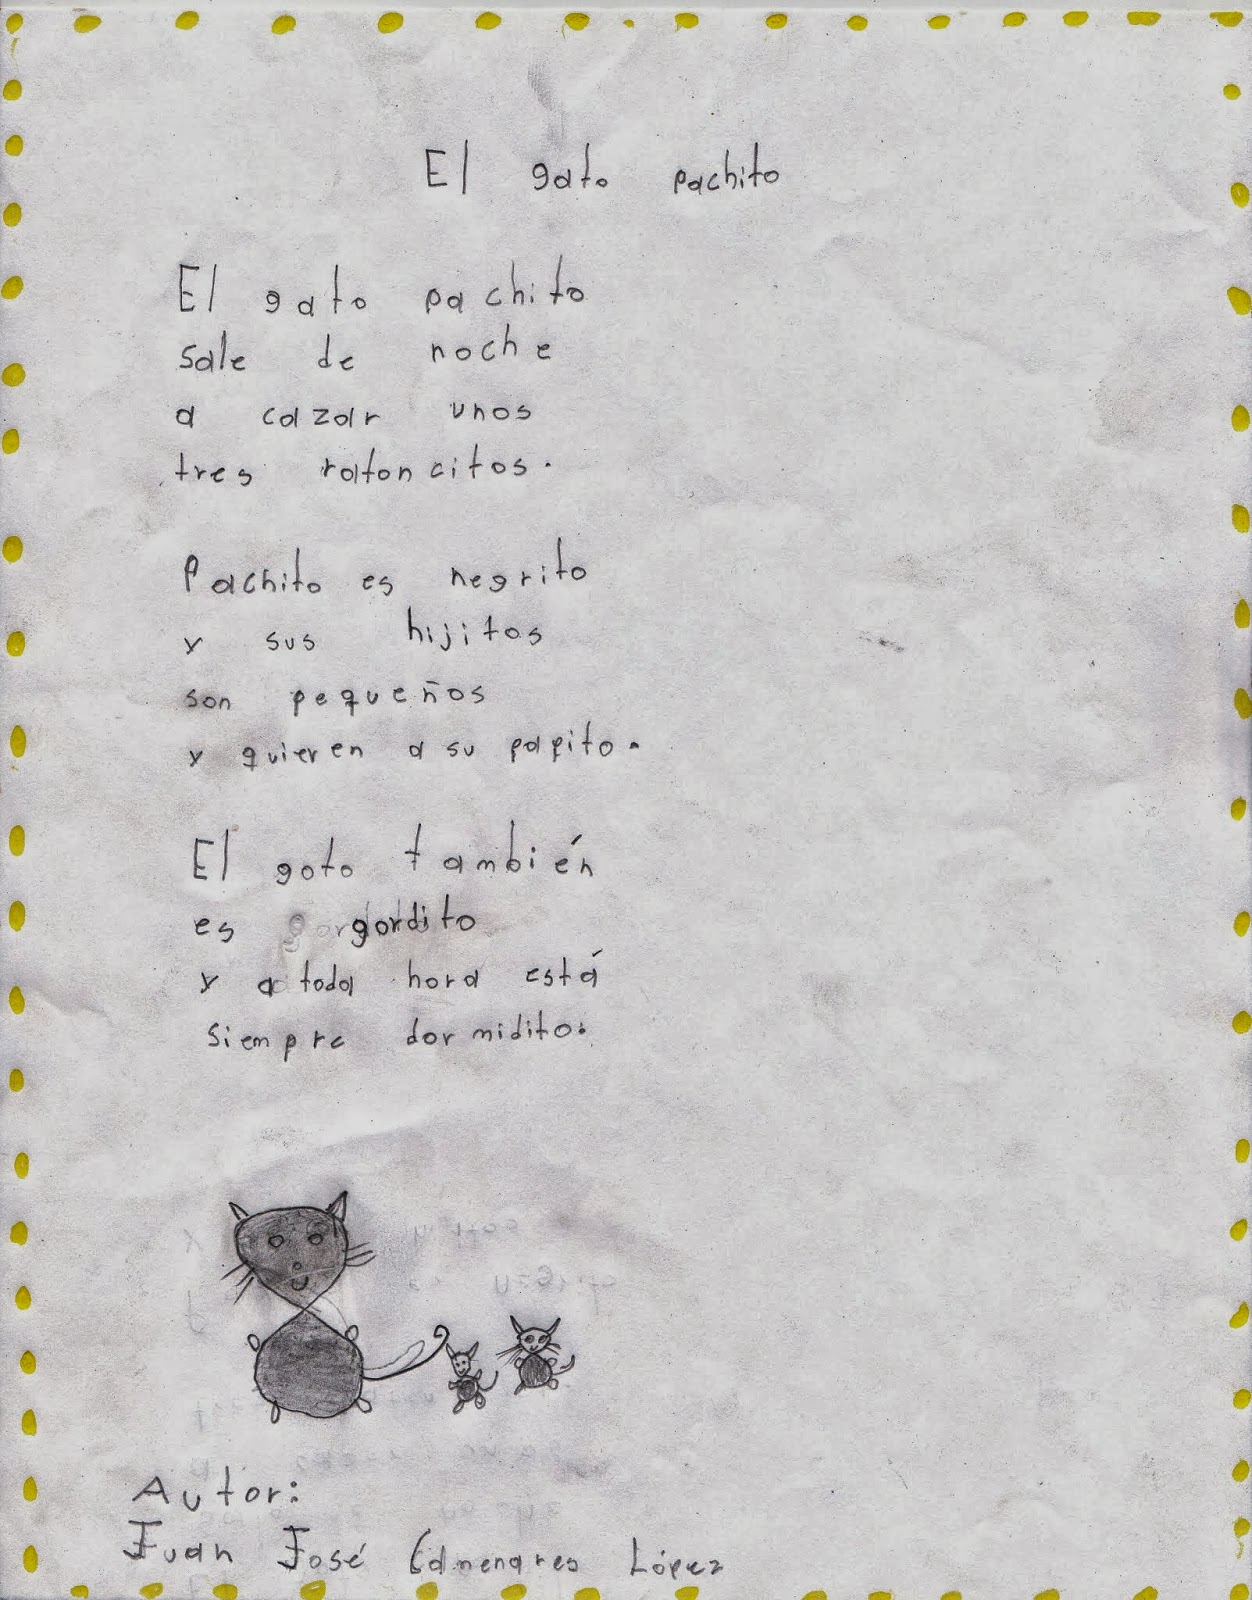 El gato pachito
El gato pachito
sale de noche
a cazar unos
tres ratoncitos.
Pachito es negrito
y sus hijitos
son pequeños
y quieren a su papito.
El gato también
es gordito
y a toda hora está
siempre dormidito.
Autor:
Juan José Camenares López